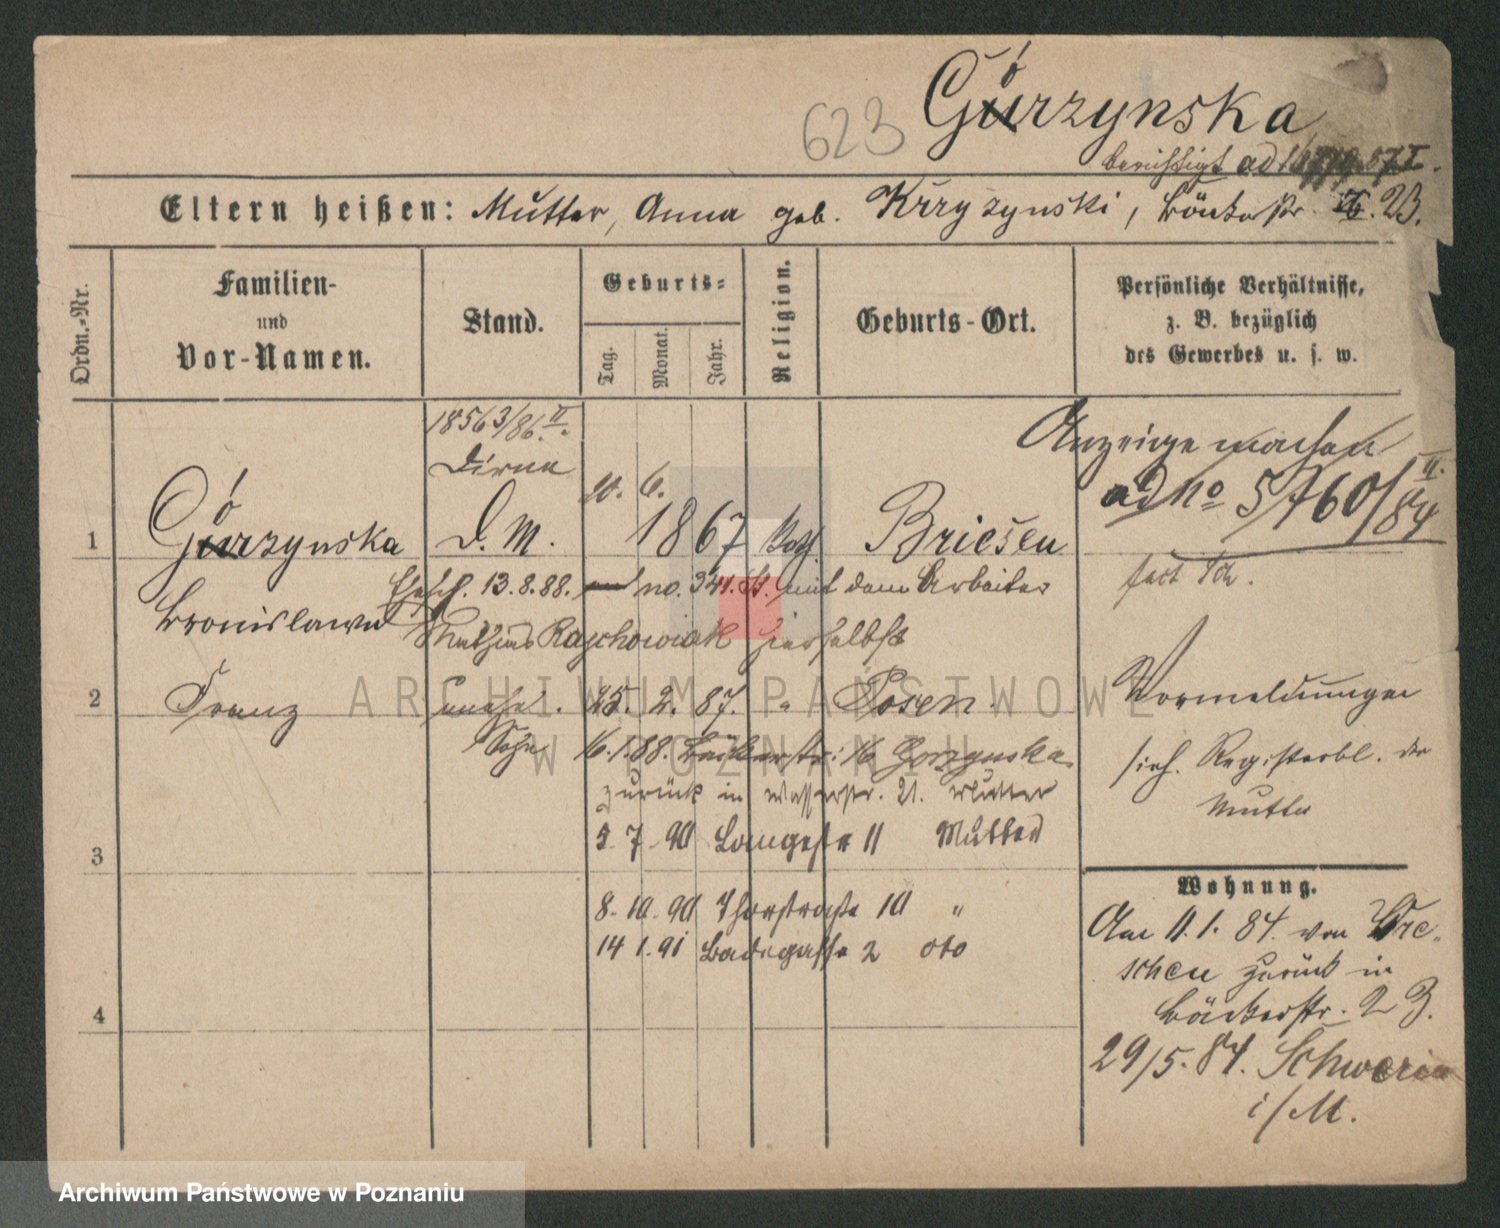 623 Górzynska
berichtigt ad
Eltern heißen: Mutter, Anna geb. Krzyzynski, Bäckerstr. 23.
Ordn.-Nr.
Familien-
und
Vor-Namen.
Stand.
Geburts-
Tag.
Monat.
Jahr.
Religion.
Geburts-Ort.
Persönliche Verhältnisse,
z. B. bezüglich
des Gewerbes u. s. w.
18563/86. II.
Dirne
Anzeige machen
ad No 5760/84 II.
1 Górzynska D. M. 6. 1867 Kath. Briesen
Ehesch. 13.8.88. no. 341. St. mit dem Arbeiter
Bronislawa Mathias Raychowiak hierselbst
2 Franz unehel. 25. 2. 87. " Posen.
Sohn
16.1.88. Bäckerstr: 16 Gorzynska
zurück in Wasserstr. 21. Mutter
3
5. 7. 90 Langestr 11 Mutter
8. 10. 90 Thorstraße 10 "
14 1. 91 Badegasse 2 dto
4
Vormeldungen
sieh. Registerbl. der
Mutter
Wohnung.
Am 11. 1. 84. von Wre-
schen zurück in
Bäckerstr. 23.
29/5. 84. Schwerin
i/M.
ARCHIWUM PAŃSTWOWE
W POZNANIU
Archiwum Państwowe w Poznaniu